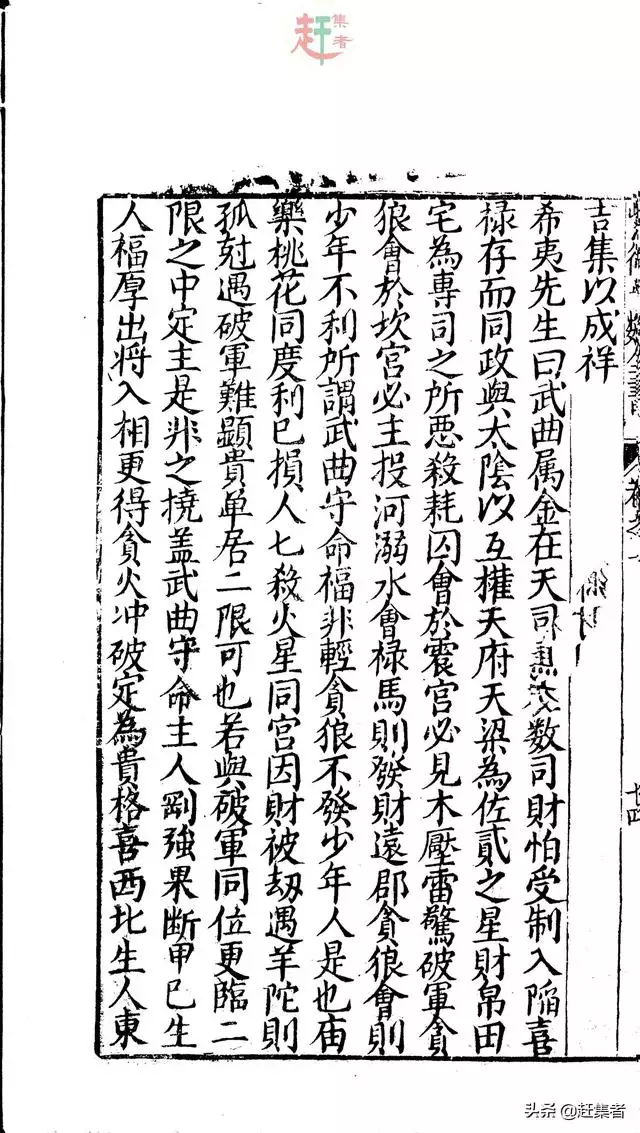 赶集者
吉集以成祥
希夷先生曰武曲属金在天司
数司財怕受制入陷喜
禄存而同政與太陰以互權天府天梁為佐貳之星財帛田
宅為專司之所惡殺耗囚會於震官必見木壓雷驚破軍貪
狼會於坎宫必主投河溺水會祿馬則發財遠郡貪狼會則
少年不利所謂武曲守命福非輕貪狼不發少年人是也庙
樂桃花同度利巳損人七殺火星同宫因財被刼遇羊陀則
孤尅遇破軍難顯貴单居二限可也若與破軍同位更臨二
限之中定主是非之撓盖武曲守命主人剛強果断甲巳生
人福厚出將入相更得貪火冲破定為貴格喜西北生人東
頭条 @赶集者